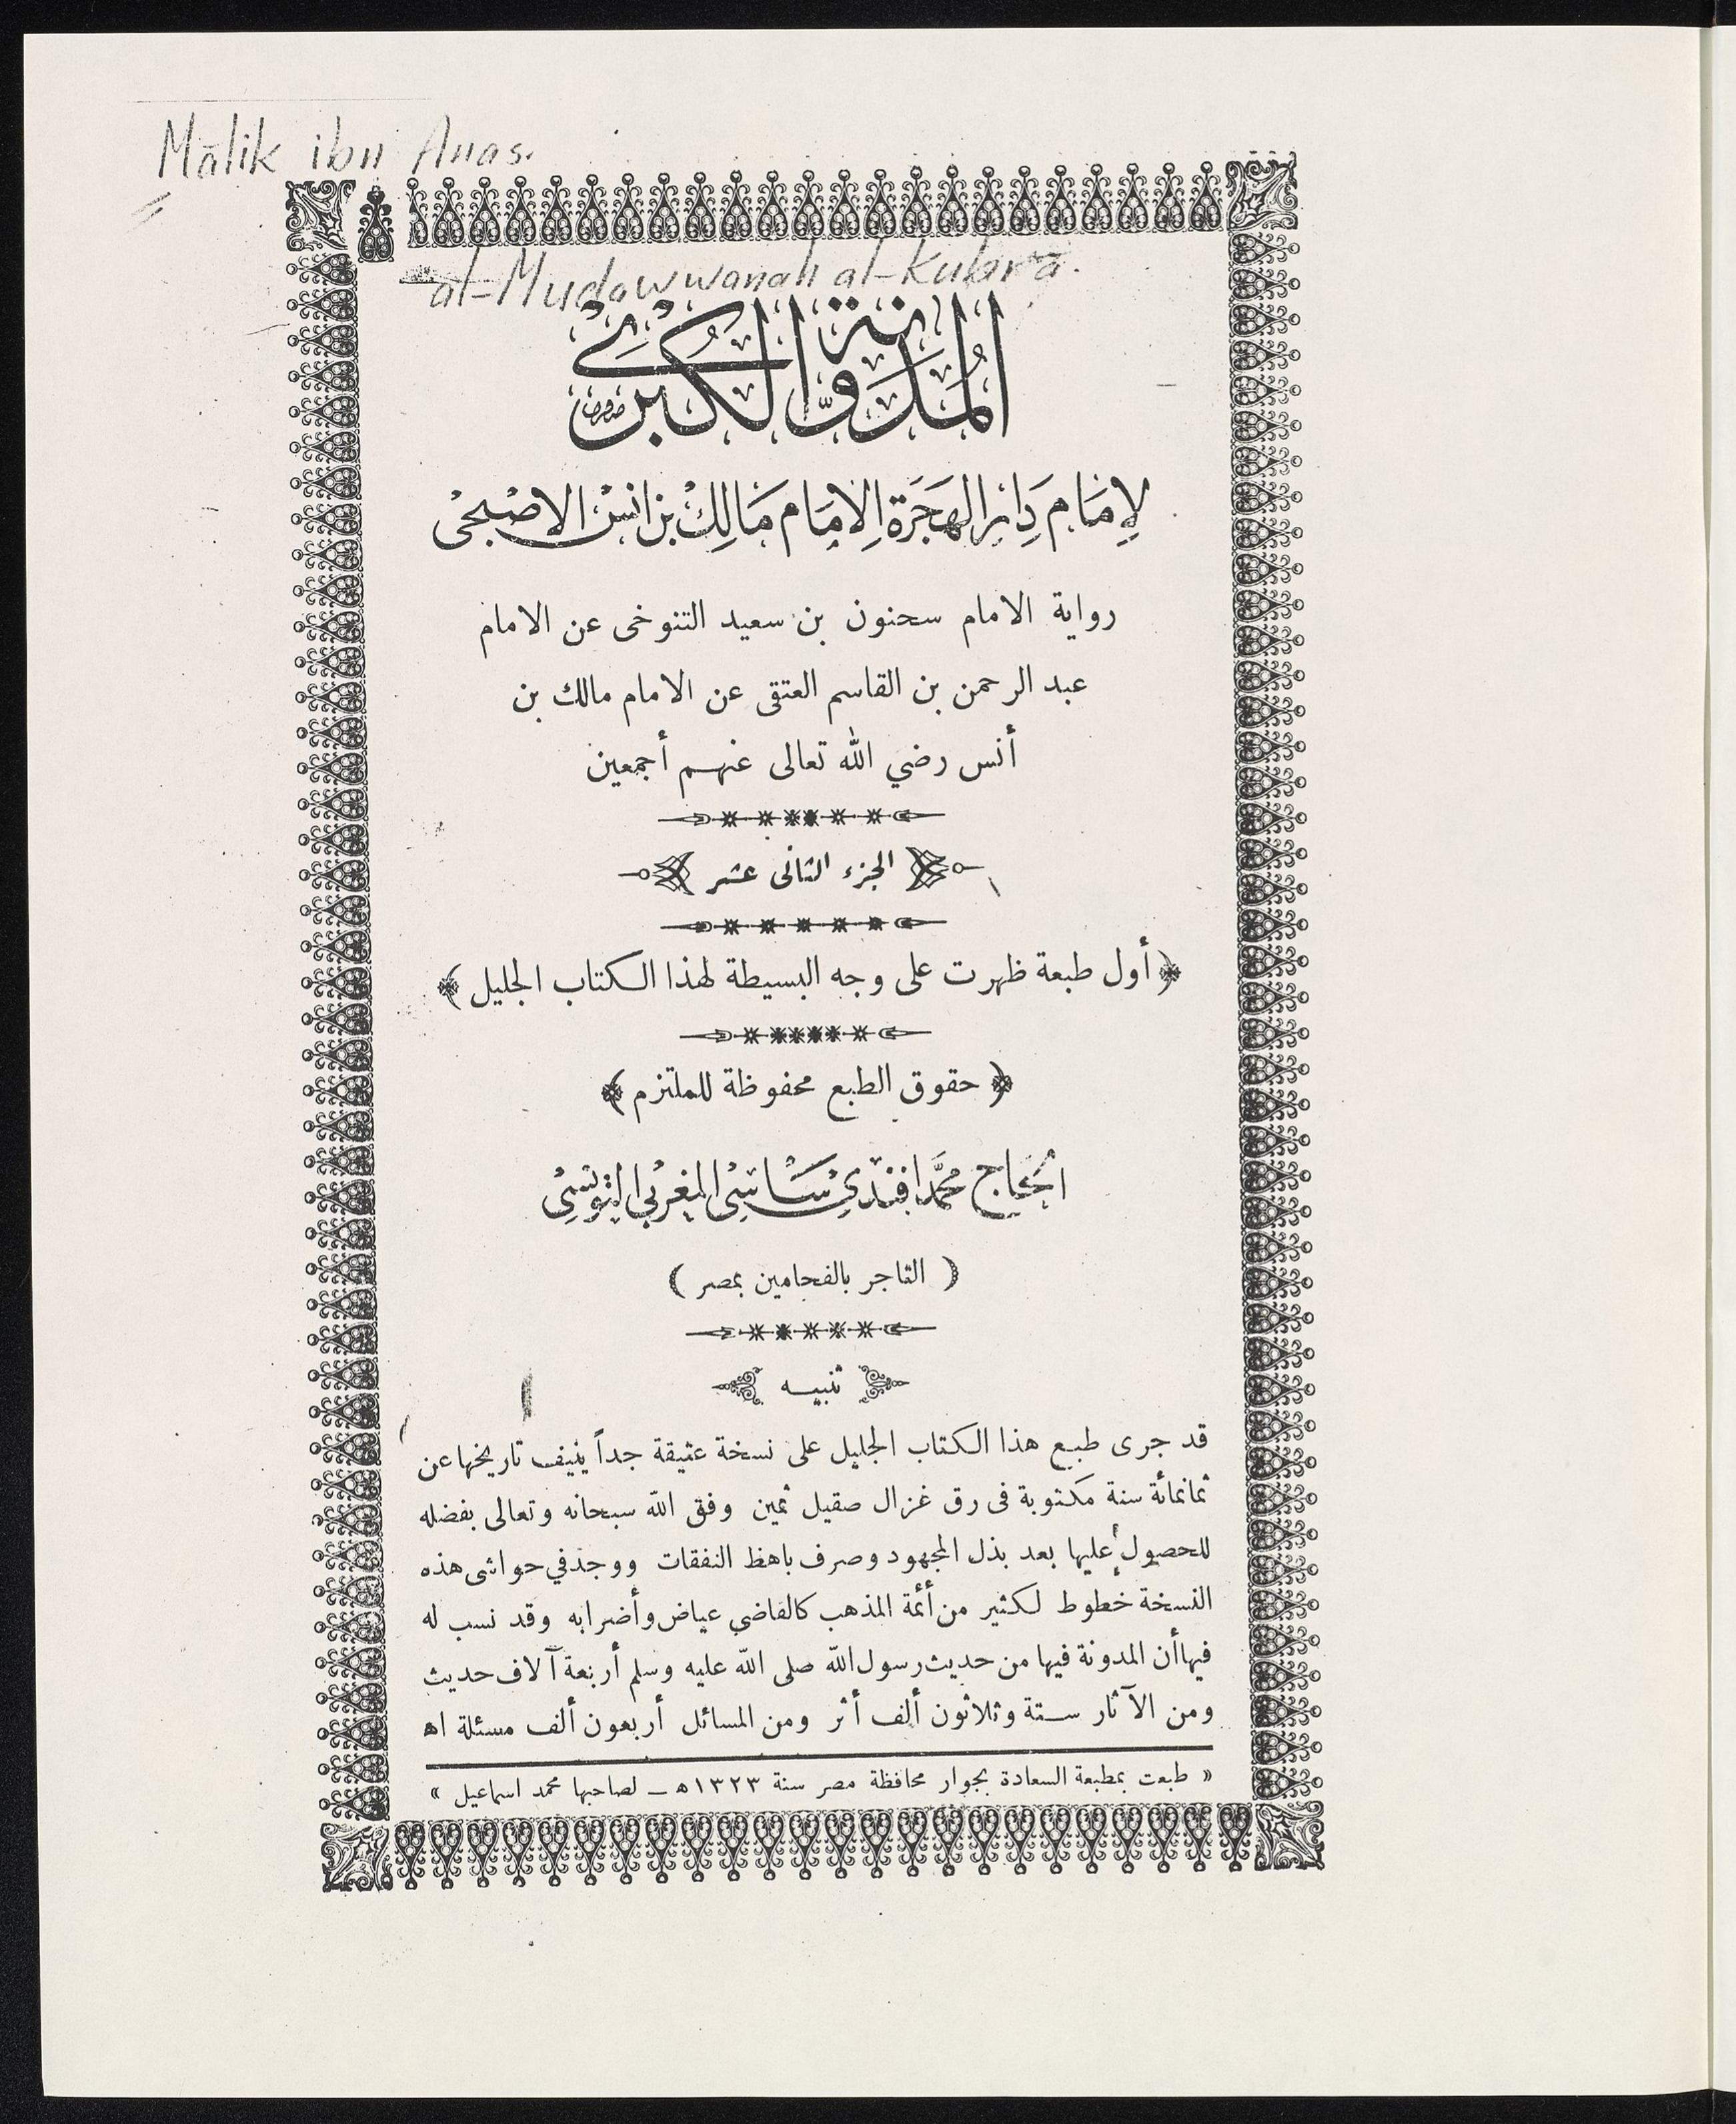 Mālik ibn Anas.
al-Mudawwanah al-Kubrā.
المُدَوَّنة الكُبْرَى
لِإمَام دَارِ الهِجَرَة الإمَام مَالِكْ بن انسْ الاصْبحْى
رواية الامام سحنون بن سعيد التنوخى عن الامام
عبد الرحمن بن القاسم العتقى عن الامام مالك بن
أنس رضي الله تعالى عنهم أجمعين
الجزء الثانى عشر
﴿ أول طبعة ظهرت على وجه البسيطة لهذا الكتاب الجليل ﴾
﴿ حقوق الطبع محفوظة للملتزم ﴾
الحَاج محمَّد افندى سَاسى المغربى التونسى
( التاجر بالفحامين بمصر )
تنبيه
قد جرى طبع هذا الكتاب الجليل على نسخة عتيقة جداً ينيف تاريخها عن
ثمانمائة سنة مكتوبة فى رق غزال صقيل ثمين وفق الله سبحانه وتعالى بفضله
للحصول عليها بعد بذل المجهود وصرف باهظ النفقات ووجد في حواشى هذه
النسخة خطوط لكثير من أئمة المذهب كالقاضي عياض وأضرابه وقد نسب له
فيها أن المدونة فيها من حديث رسول الله صلى الله عليه وسلم أربعة آلاف حديث
ومن الآثار ستة وثلاثون ألف أثر ومن المسائل أربعون ألف مسئلة اه
« طبعت بمطبعة السعادة بجوار محافظة مصر سنة ١٣٢٣ه – لصاحبها محمد اسماعيل »